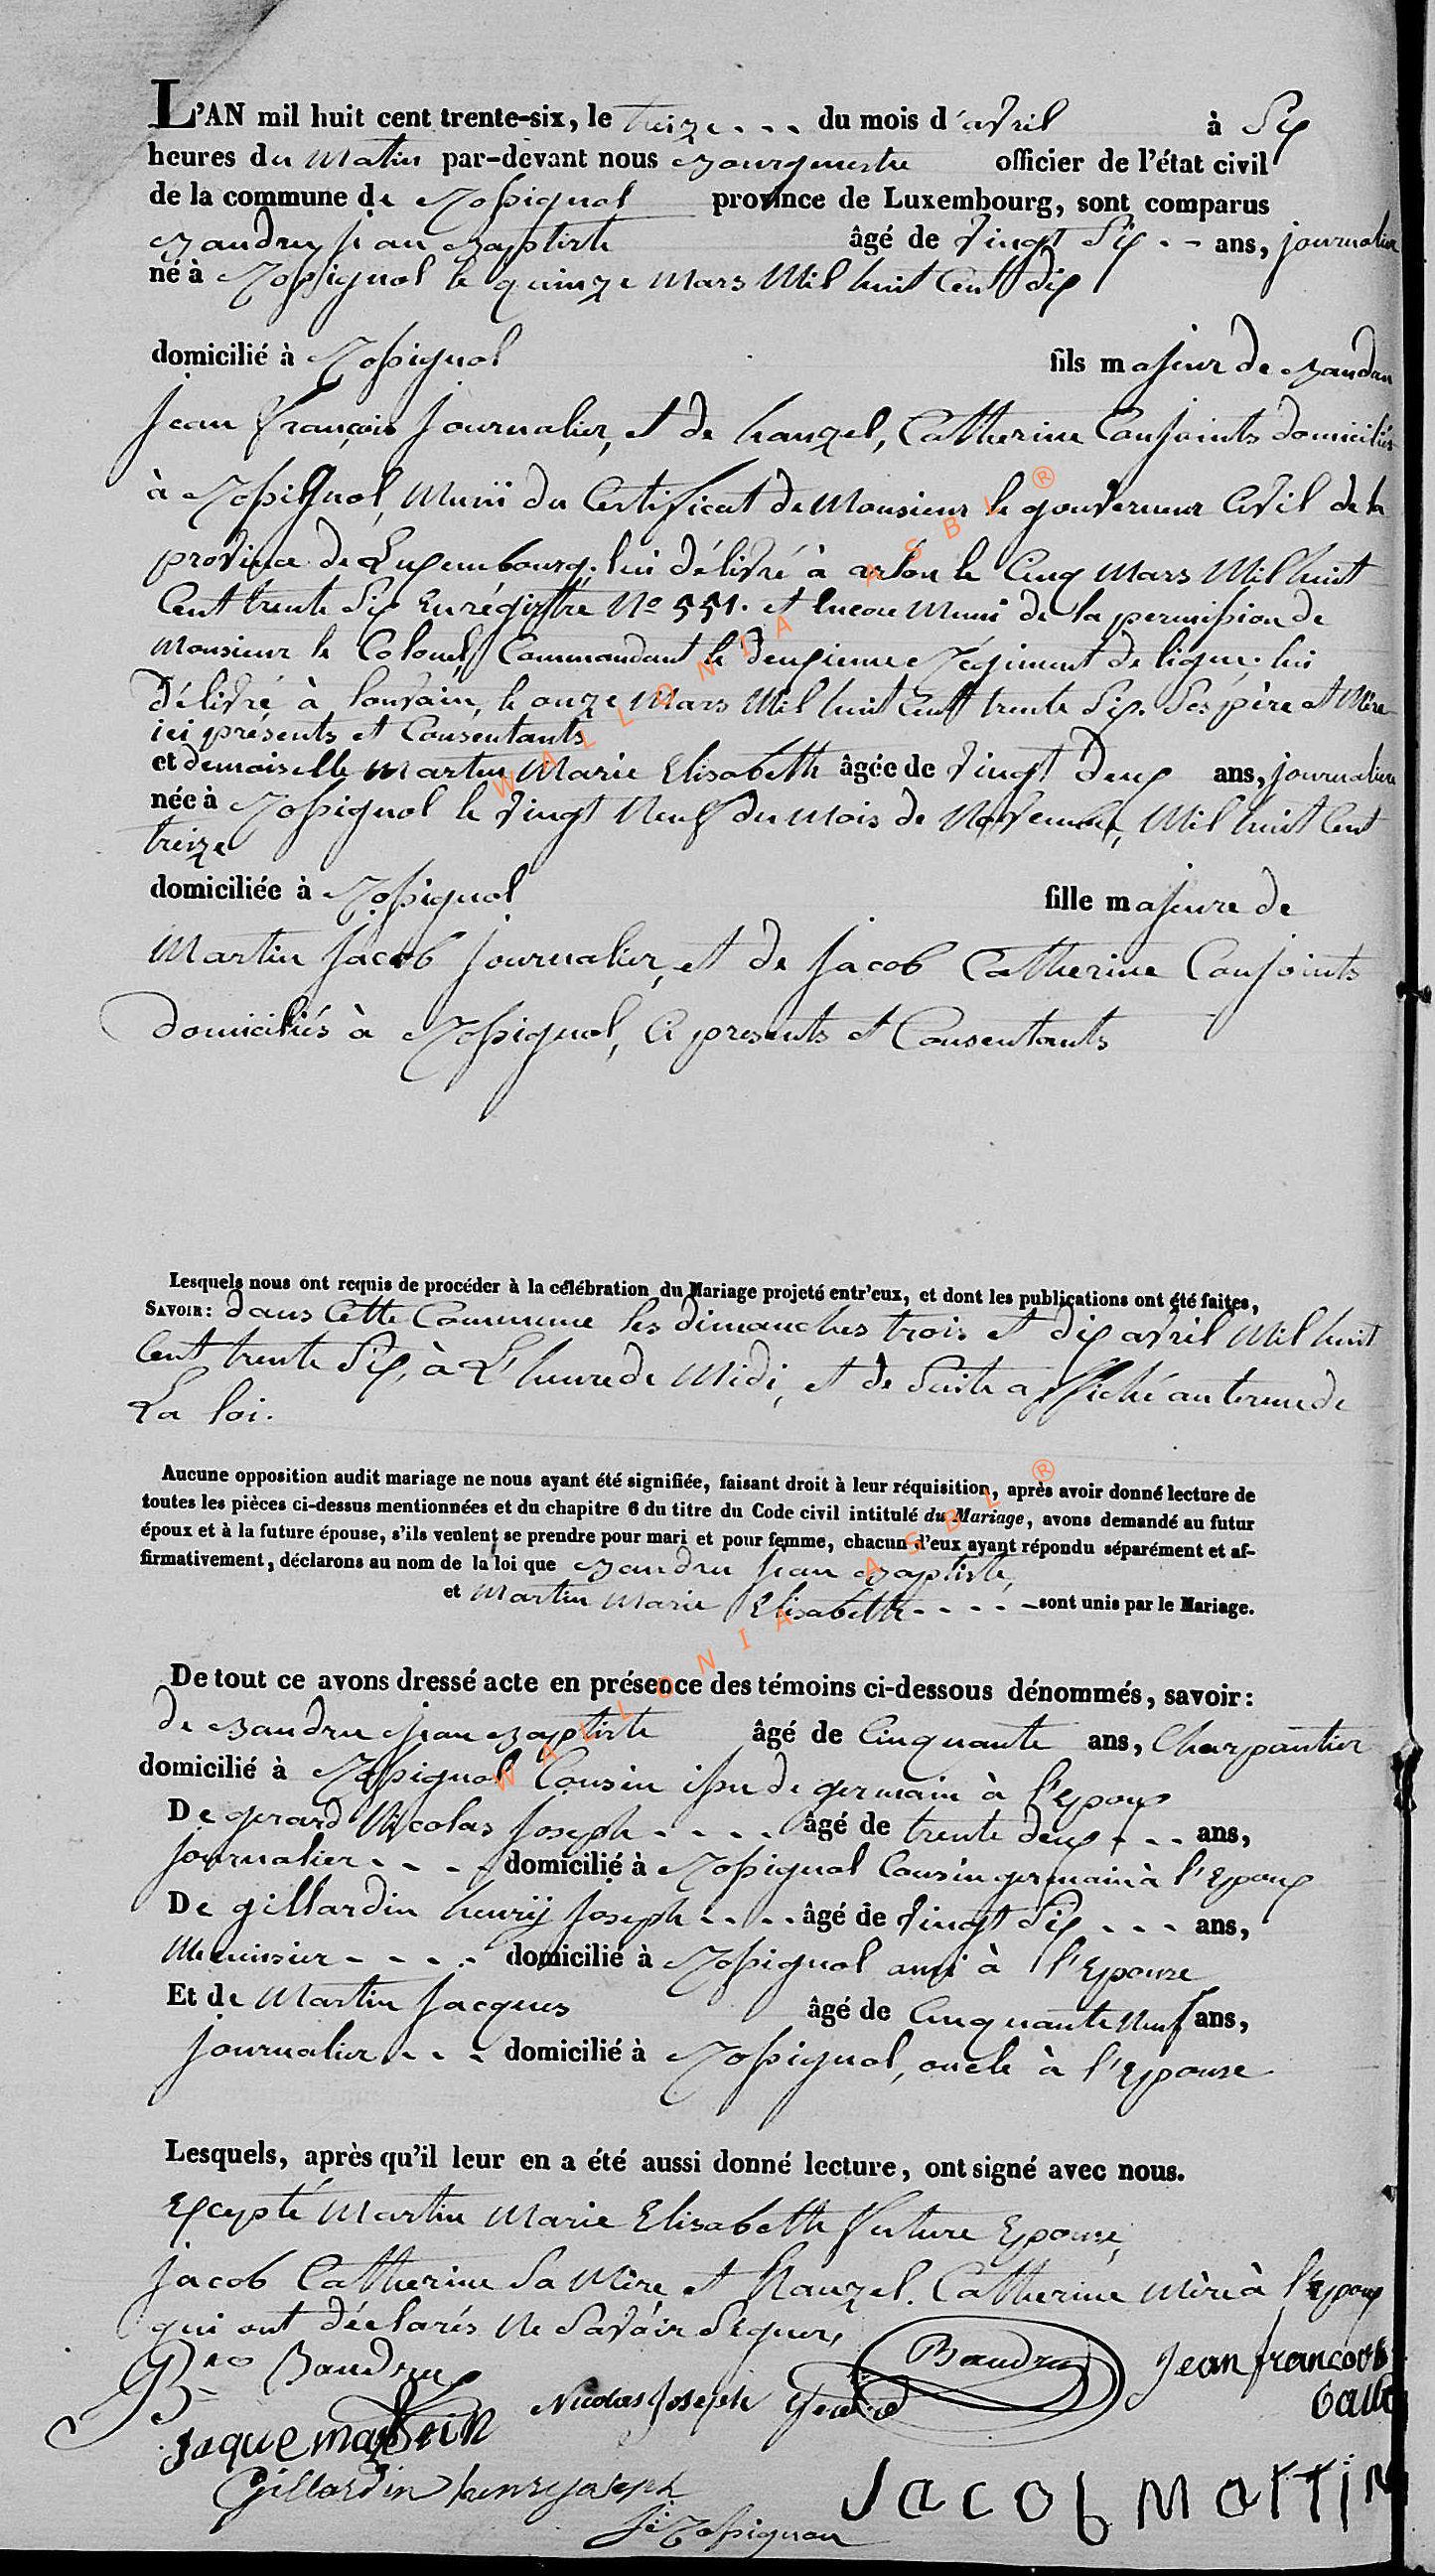 L'AN mil huit cent trente-six, le treize - - - du mois d'avril à Six
heures du Matin par-devant nous Bourgmestre officier de l'état civil
de la commune de Rossignol province de Luxembourg, sont comparus
Baudru jean Baptiste âgé de Vingt Six - - ans, journalier
né à Rossignol le quinze Mars Mil huit Cent dix
domicilié à Rossignol fils majeur de Baudru
jean françois journalier, et de hanzel, Catherine Conjoints domiciliés
à Rossignol, Muni du Certificat de Monsieur le gouverneur Civil de la
province de Luxembourg. lui délivré à arlon le Cinq Mars Mil huit
Cent trente Six Enrégistre No 551. et Encore Muni de la permission de
Monsieur le Colonel Commandant le deuxieme Régiment de ligne. lui
délivré à louvain, le onze Mars Mil huit Cent trente Six. Ses père et Mère
ici présents et Consentants
et demoiselle Martin Marie Elisabeth âgée de Vingt deux ans, journaliere
née à Rossignol le Vingt Neuf du Mois de Novembre, Mil huit Cent
treize
domiciliée à Rossignol fille majeure de
Martin Jacob journalier, et de Jacob Catherine Conjoints
domiciliés à Rossignol, Ci presents et Consentants
Lesquels nous ont requis de procéder à la célébration du Mariage projeté entr'eux, et dont les publications ont été faites,
SAVOIR: dans Cette Commune les dimanches trois et dix avril Mil huit
Cent trente Six, à L'heure de Midi, et de Suite affiché au terme de
La loi.
Aucune opposition audit mariage ne nous ayant été signifiée, faisant droit à leur réquisition, après avoir donné lecture de
toutes les pièces ci-dessus mentionnées et du chapitre 6 du titre du Code civil intitulé du Mariage, avons demandé au futur
époux et à la future épouse, s'ils veulent se prendre pour mari et pour femme, chacun d'eux ayant répondu séparément et af-
firmativement, déclarons au nom de la loi que Baudru jean Baptiste,
et Martin Marie Elisabeth - - - - - sont unis par le Mariage.
De tout ce avons dressé acte en présence des témoins ci-dessous dénommés, savoir:
de Baudru jean Baptiste âgé de Cinquante ans, Charpantier
domicilié à Rossignol Cousin issu de germain à l'Epoux
De gerard Nicolas Joseph - - - - âgé de trente deux - - - ans,
journalier - - - - domicilié à Rossignol Cousin germain à l'Epoux
De gillardin henry Joseph - - - - âgé de Vingt Six - - - ans,
Menuisier - - - - domicilié à Rossignol ami à l'Epouse
Et de Martin Jacques âgé de Cinquante Neuf ans,
journalier - - - domicilié à Rossignol, oncle à l'Epouse
Lesquels, après qu'il leur en a été aussi donné lecture, ont signé avec nous.
Excepté Martin Marie Elisabeth future Epouse,
Jacob Catherine Sa Mère, et Hanzel. Catherine Mère à l'Epoux
qui ont déclarés Ne Savoir Signer,
Baudru Baudru Jean francois
Nicolas Joseph Gerard
Jaque martin
Gillardin henry joseph Jacob Martin
WALLONIA ASBL ®
WALLONIA ASBL ®